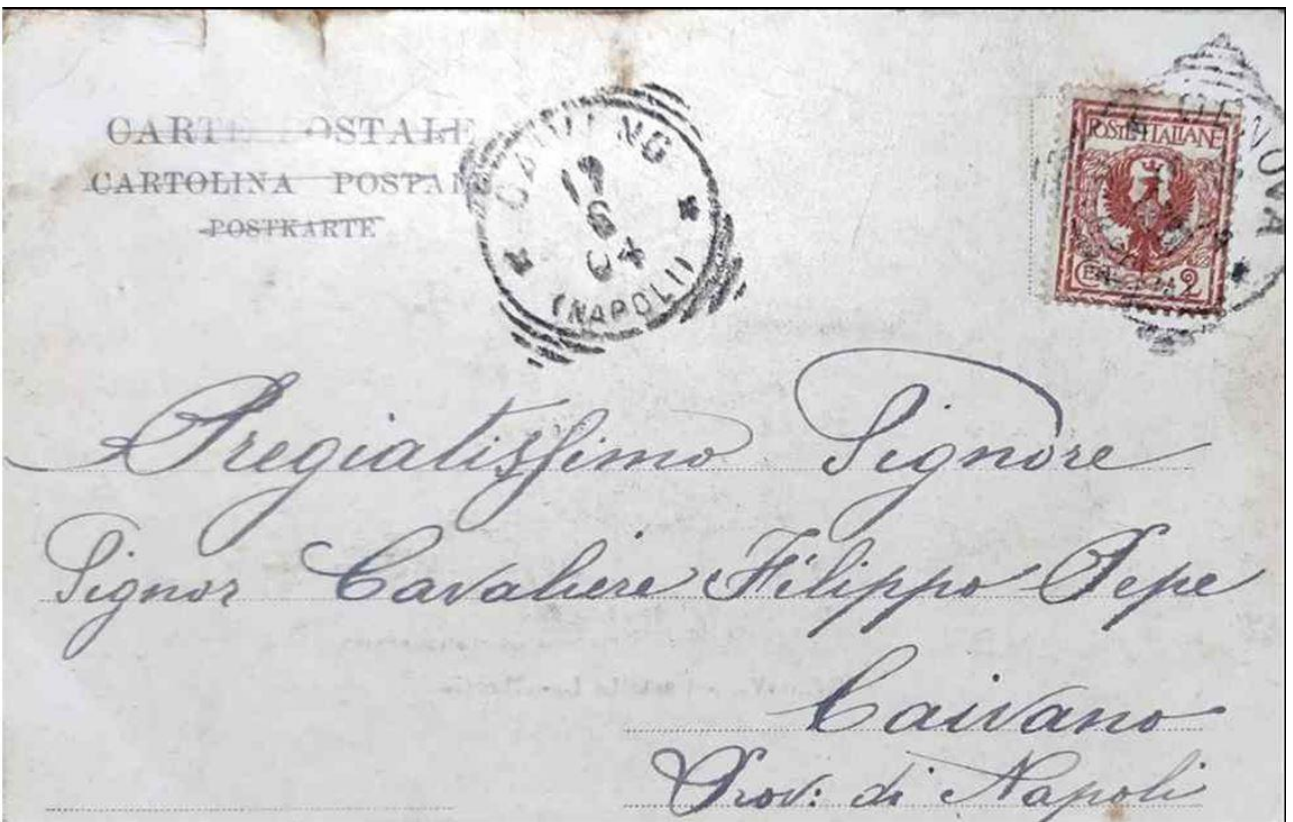 CARTE POSTALE
CARTOLINA POSTALE
POSTKARTE
CAIVANO
17
04
(NAPOLI)
POSTE ITALIANE
CENT. 2
Pregiatissimo Signore
Signor Cavaliere Filippo Pepe
Caivano
Prov: di Napoli